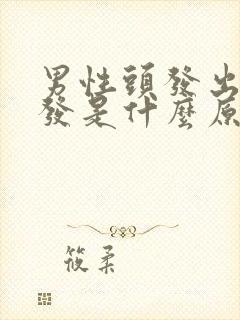 男性頭發出
發是什麼原
筱柔